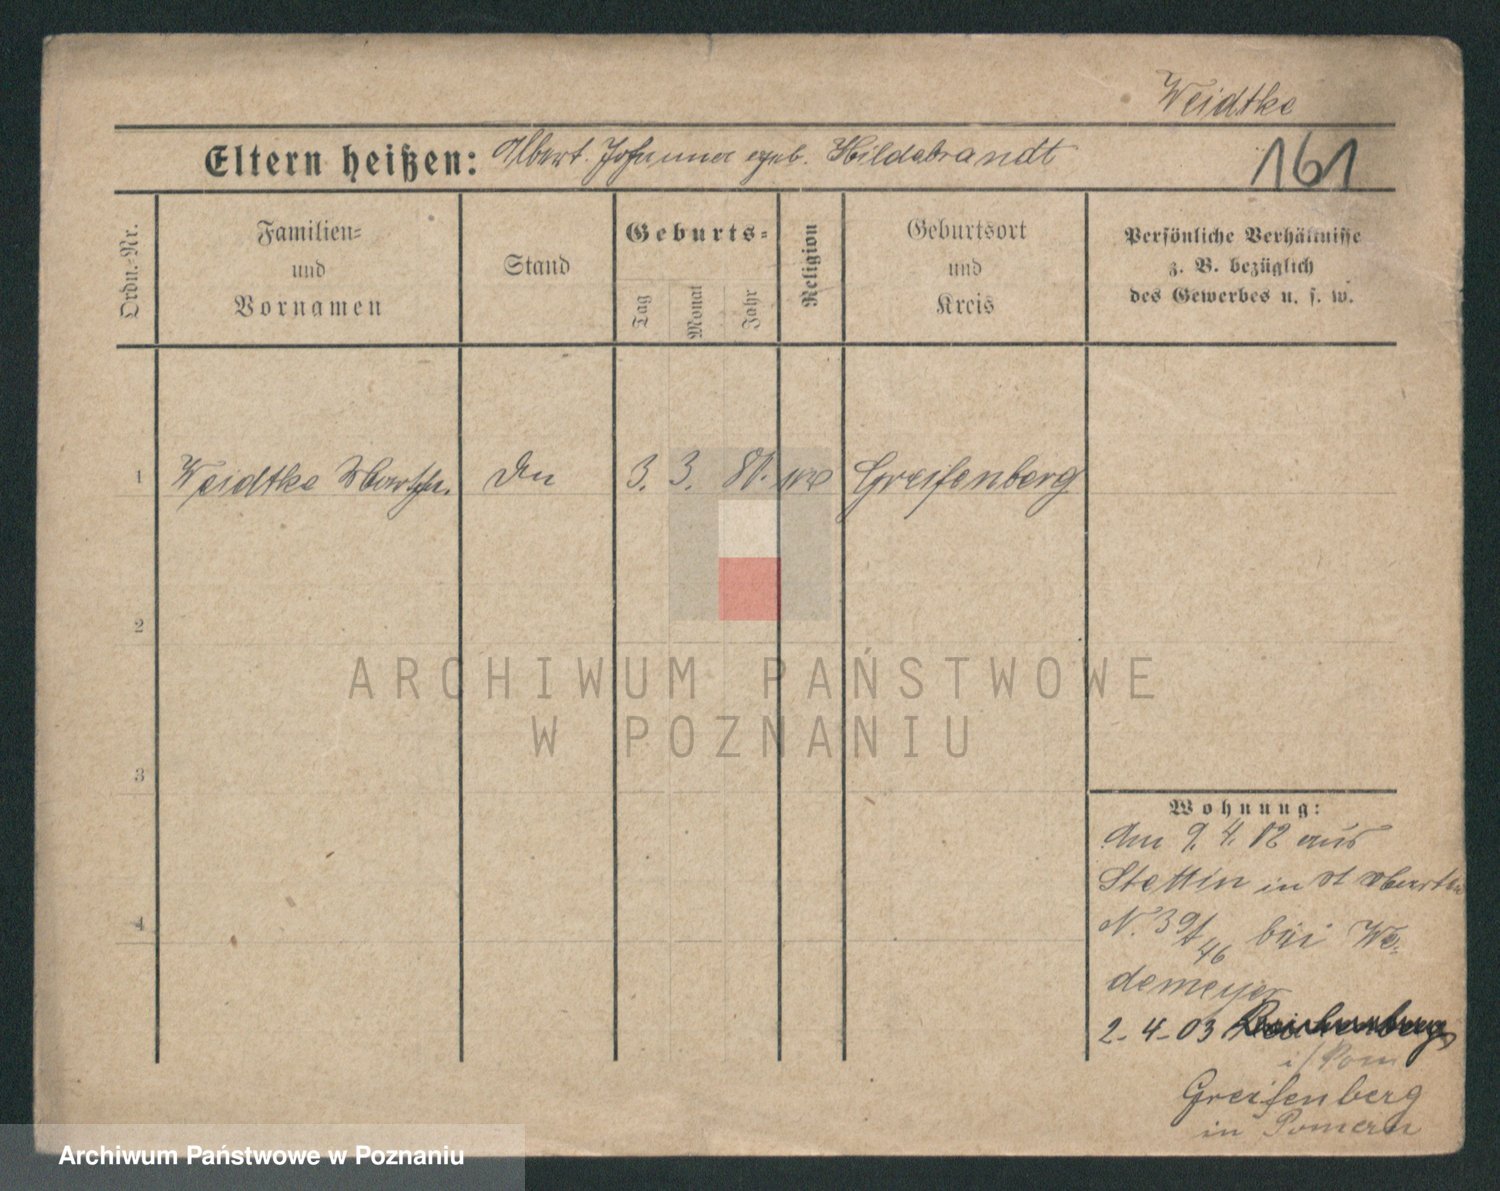 Weidtke
Eltern heißen: Albert. Johanna geb. Hildebrandt
161
Ordn.-Nr.
Familien-
und
Vornamen
Stand
Geburts-
Tag
Monat
Jahr
Religion
Geburtsort
und
Kreis
Persönliche Verhältnisse
z. B. bezüglich
des Gewerbes u. s. w.
1 Weidtke 3. 3. 80. Greifenberg
2
3
4
ARCHIWUM PAŃSTWOWE
W POZNANIU
Wohnung:
Am 9. 4. 02 aus
Stettin in St
N. 39/46 bei We-
demeyer
2-4-03
i/Pom
Greifenberg
in Pomern
Archiwum Państwowe w Poznaniu